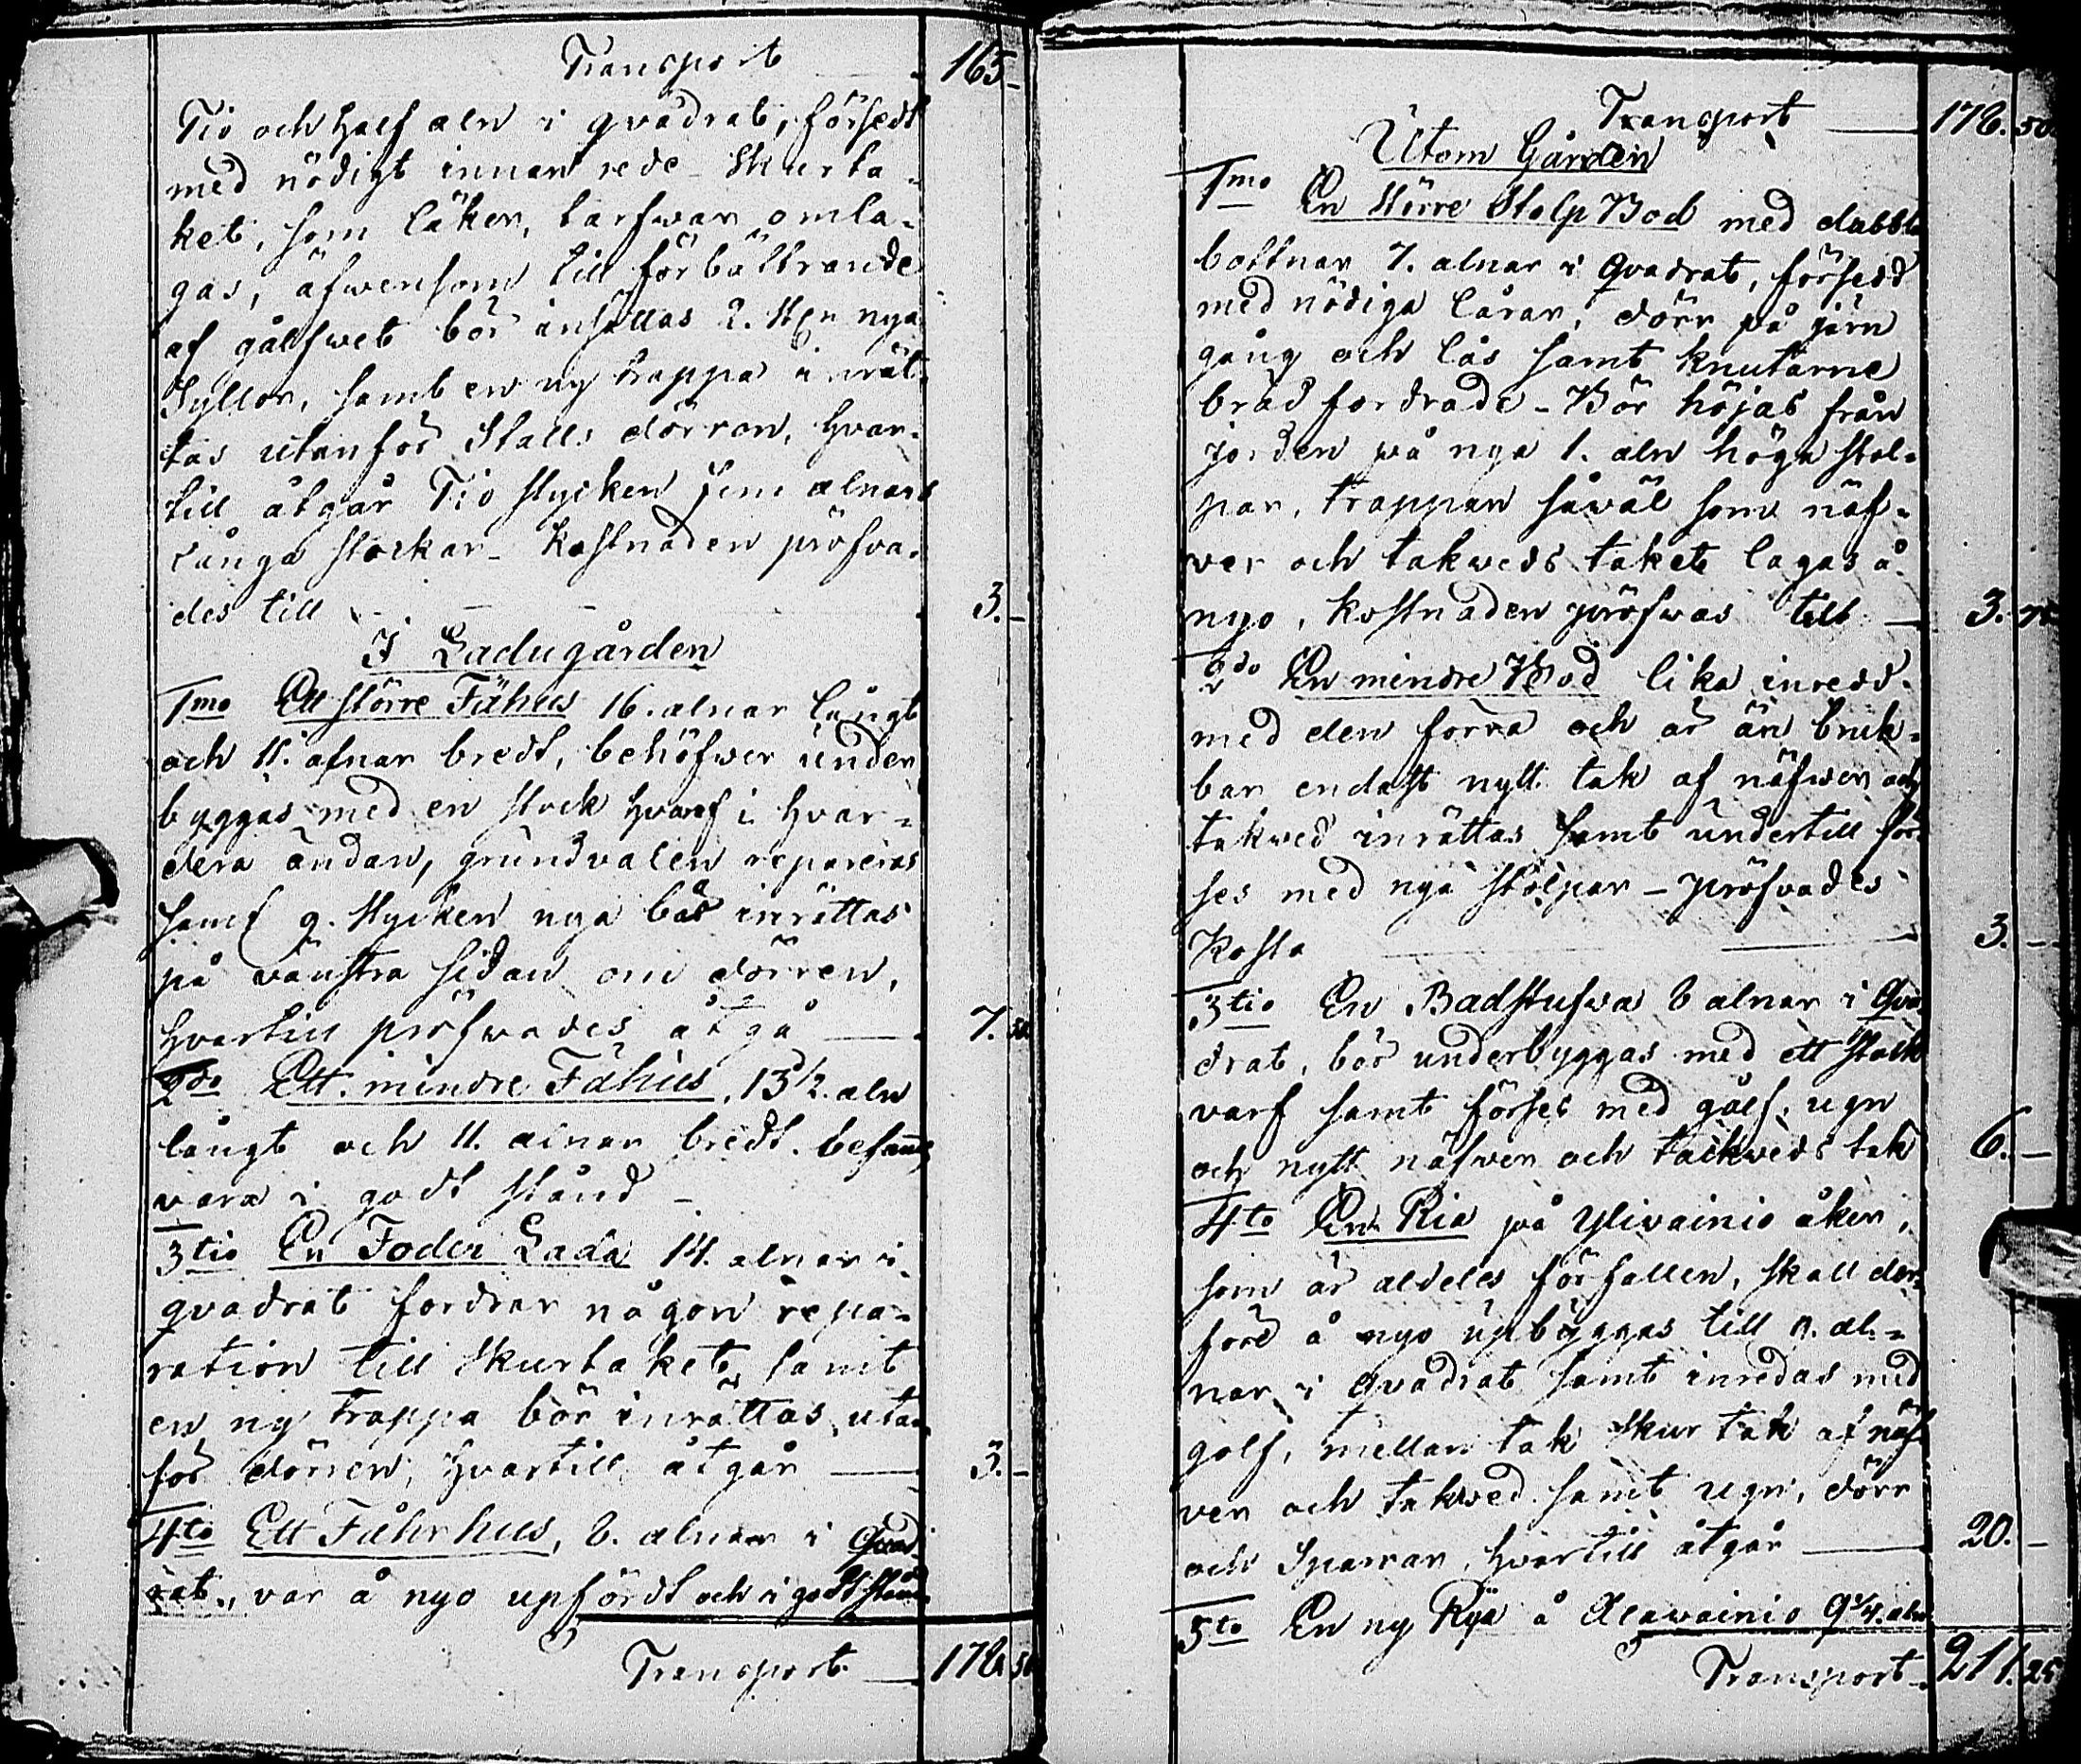 Transport 165 -
Tio och half aln i qvadrat, försedt
med nödigt innanrede Skurta-
ket, som läker, tarfwar omla-
gas, äfwensom till förbättrande
af gålfwet bör insättas 2. St:n nya
Syllor, samt en ny trappa inrät-
tas utanför Stalls dörren, hvar-
till åtgår Tio stycken fem alnars
långa stockar - Kostnaden pröfva-
des till - - - 3. -
I Ladugården
1mo Ett större Fähus 16. alnar långt
och 11. alnar bredt, behöfwer under
byggas med en stock hvarf i hvar-
dera ändan, grundvalen repareras
samt 9. stycken nya bås inrättas
på vänstra sidan om dörren,
hvartill pröfwades åtgå — 7. 50
2do Ett mindre Fähus, 13 1/2. aln
långt och 11. alnar bredt. befanns
vara i godt stånd -
3tio En Foder Lada 14. alnar i
qvadrat fordrar någon repa-
ration till Skurtaket, samt
en ny trappa bör inrättas utan-
för dörren, hvartill åtgår — 3. -
4to Ett Fåhrhus, 8. alnar i Qvad-
rat., var å nyo upfördt och i godt stånd
Transport — 178. 50
Transport — 178. 50
Utom Gården
1mo En Större Stolp Bod med dubbla
bottnar 7. alnar i Qvadrat, försedd
med nödiga lårar, dörr på järn
gång och lås samt knutarne
brädfordrade - Bör höjas från
jorden på nya 1. aln höga stol-
par, trappan såwäl som näf-
ver och takweds taket lagas å
nyo, kostnaden pröfwas till — 3. 75
2do En mindre Bod lika inredd
med den förra och är än bruk-
bar endast nytt tak af näfwer och
takwed inrättas samt undertill för-
ses med nya stolpar - pröfvades
kosta — 3. -
3tio En Badstufwa 8 alnar i Qva-
drat, bör underbyggas med ett stock
varf samt förses med gålf, ugn
och nytt näfwer och tackweds tak 6. -
4to En Ria på Ylivainio åker,
som är aldeles förfallen, skall der-
före å nyo upbyggas till 9. al-
nar i Qvadrat samt inredas med
golf, mellan tak Skur tak af näf-
ver och takwed samt ugn, dörr
och Sparrar, hvartill åtgår — 20. -
5to En ny Rya å Alawainio 9 3/4. aln
Transport - 211. 25